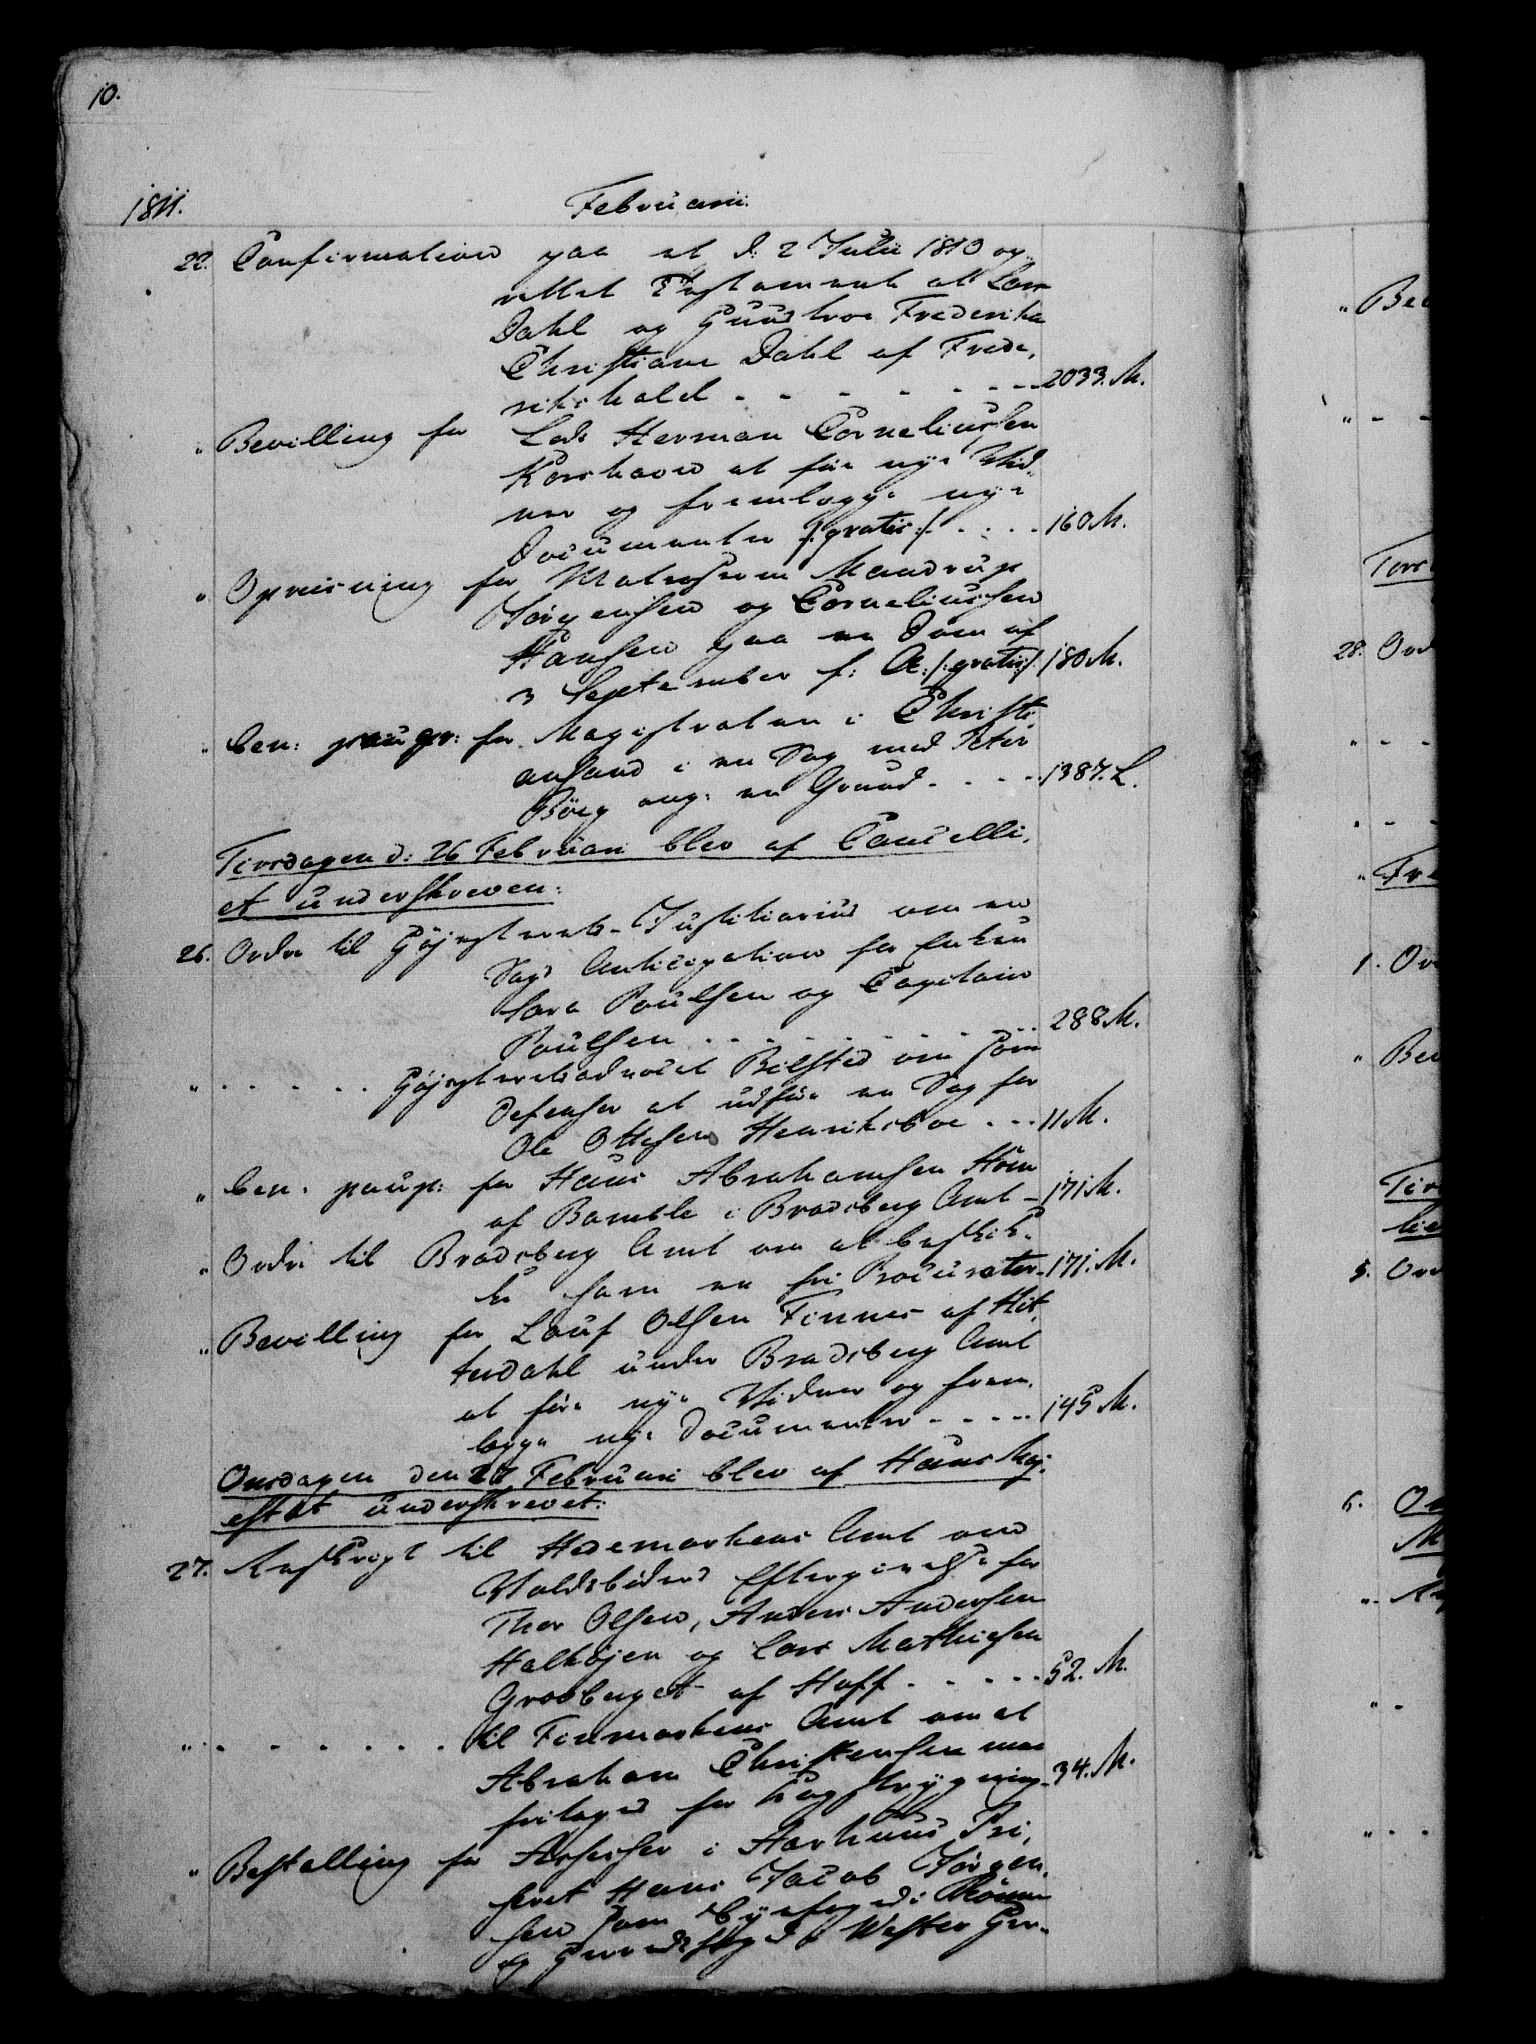 10.
1811. Februari.
22. Confirmation paa et d: 2 Julii 1810 op-
rettet Testamente af Lars
Dahl og Hustroe Frederikke
Christiane Dahl af Frede,
rikshald - - - - - - - 2033. M.
" Bevilling for Lods Herman Corneliussen
Korshavn at føre nye Vid-
ner og fremlegge nye
Documenter /: gratis :/ - - - - 160 M.
" Opreisning for Matroserne Mandrup
Jörgensen og Corneliussen
Hansen paa en Dom af
3 September f: A: /: gratis :/ 180 M.
" ben: paup: for Magistraten i Christi,
ansand i en Sag mod Peter
Börg ang: en Grund - - - - 1387. L.
Tirsdagen d: 26 Februari blev af Cancelli,
et underskreven:
26. Ordre til Höjesterets-Justitiarius om en
Sags Anticipation for Enken
Sara Poulsen og Capitain
Poulsen - - - - - - - 288. M.
" - - - - - Höjesteretsadvocat Bilsted om som
Defensor at udføre en Sag for
Ole Ottesen Henriksboe - - - 11 M.
" ben: paup: for Hans Abrahamsen
af Bamble i Bradsberg Amt - 171 M.
" Ordre til Bradsberg Amt om at beskik-
ke ham en fri Procurator - 171. M.
" Bevilling for Olsen Finnes af Hit,
terdahl under Bradsberg Amt
at føre nye Vidner og frem,
legge nye Documenter - - - - 145 M.
Onsdagen den 27 Februari blev af Hans Maj,
estet underskrevet:
27. Rescript til Hedemarkens Amt om
Voldsböders Eftergivelse for
Thor Olsen, Anders Andersen
Halhöjen og Lars Mathiesen
Grosberget af Hoff - - - - - 52. M.
" - - - - - - til Finmarkens Amt om at
Abraham Christensen maa
fritages for Kagstrygning - 34. M.
" Bestalling for Assessor i Aarhuus Tri,
senret Hans Jacob Jörgen,
sen som Byefoged i Rönne
og Herredsfoged i Wester Her-
" Bev
Tors
28. Ord
" Fre
1. Or
" Bev
Tirs
lie
5. Ord
6. On
M